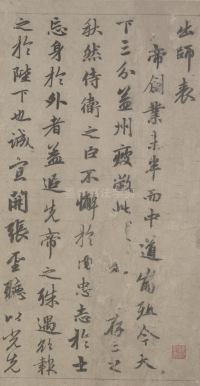 出師表
帝創業未半而中道崩殂今天
下三分益州疲敝此
秋然侍衛之臣不懈於内忠志於士
忘身於外者蓋追先帝之殊遇欲報
之於陛下也誠宜開張聖聽以光先